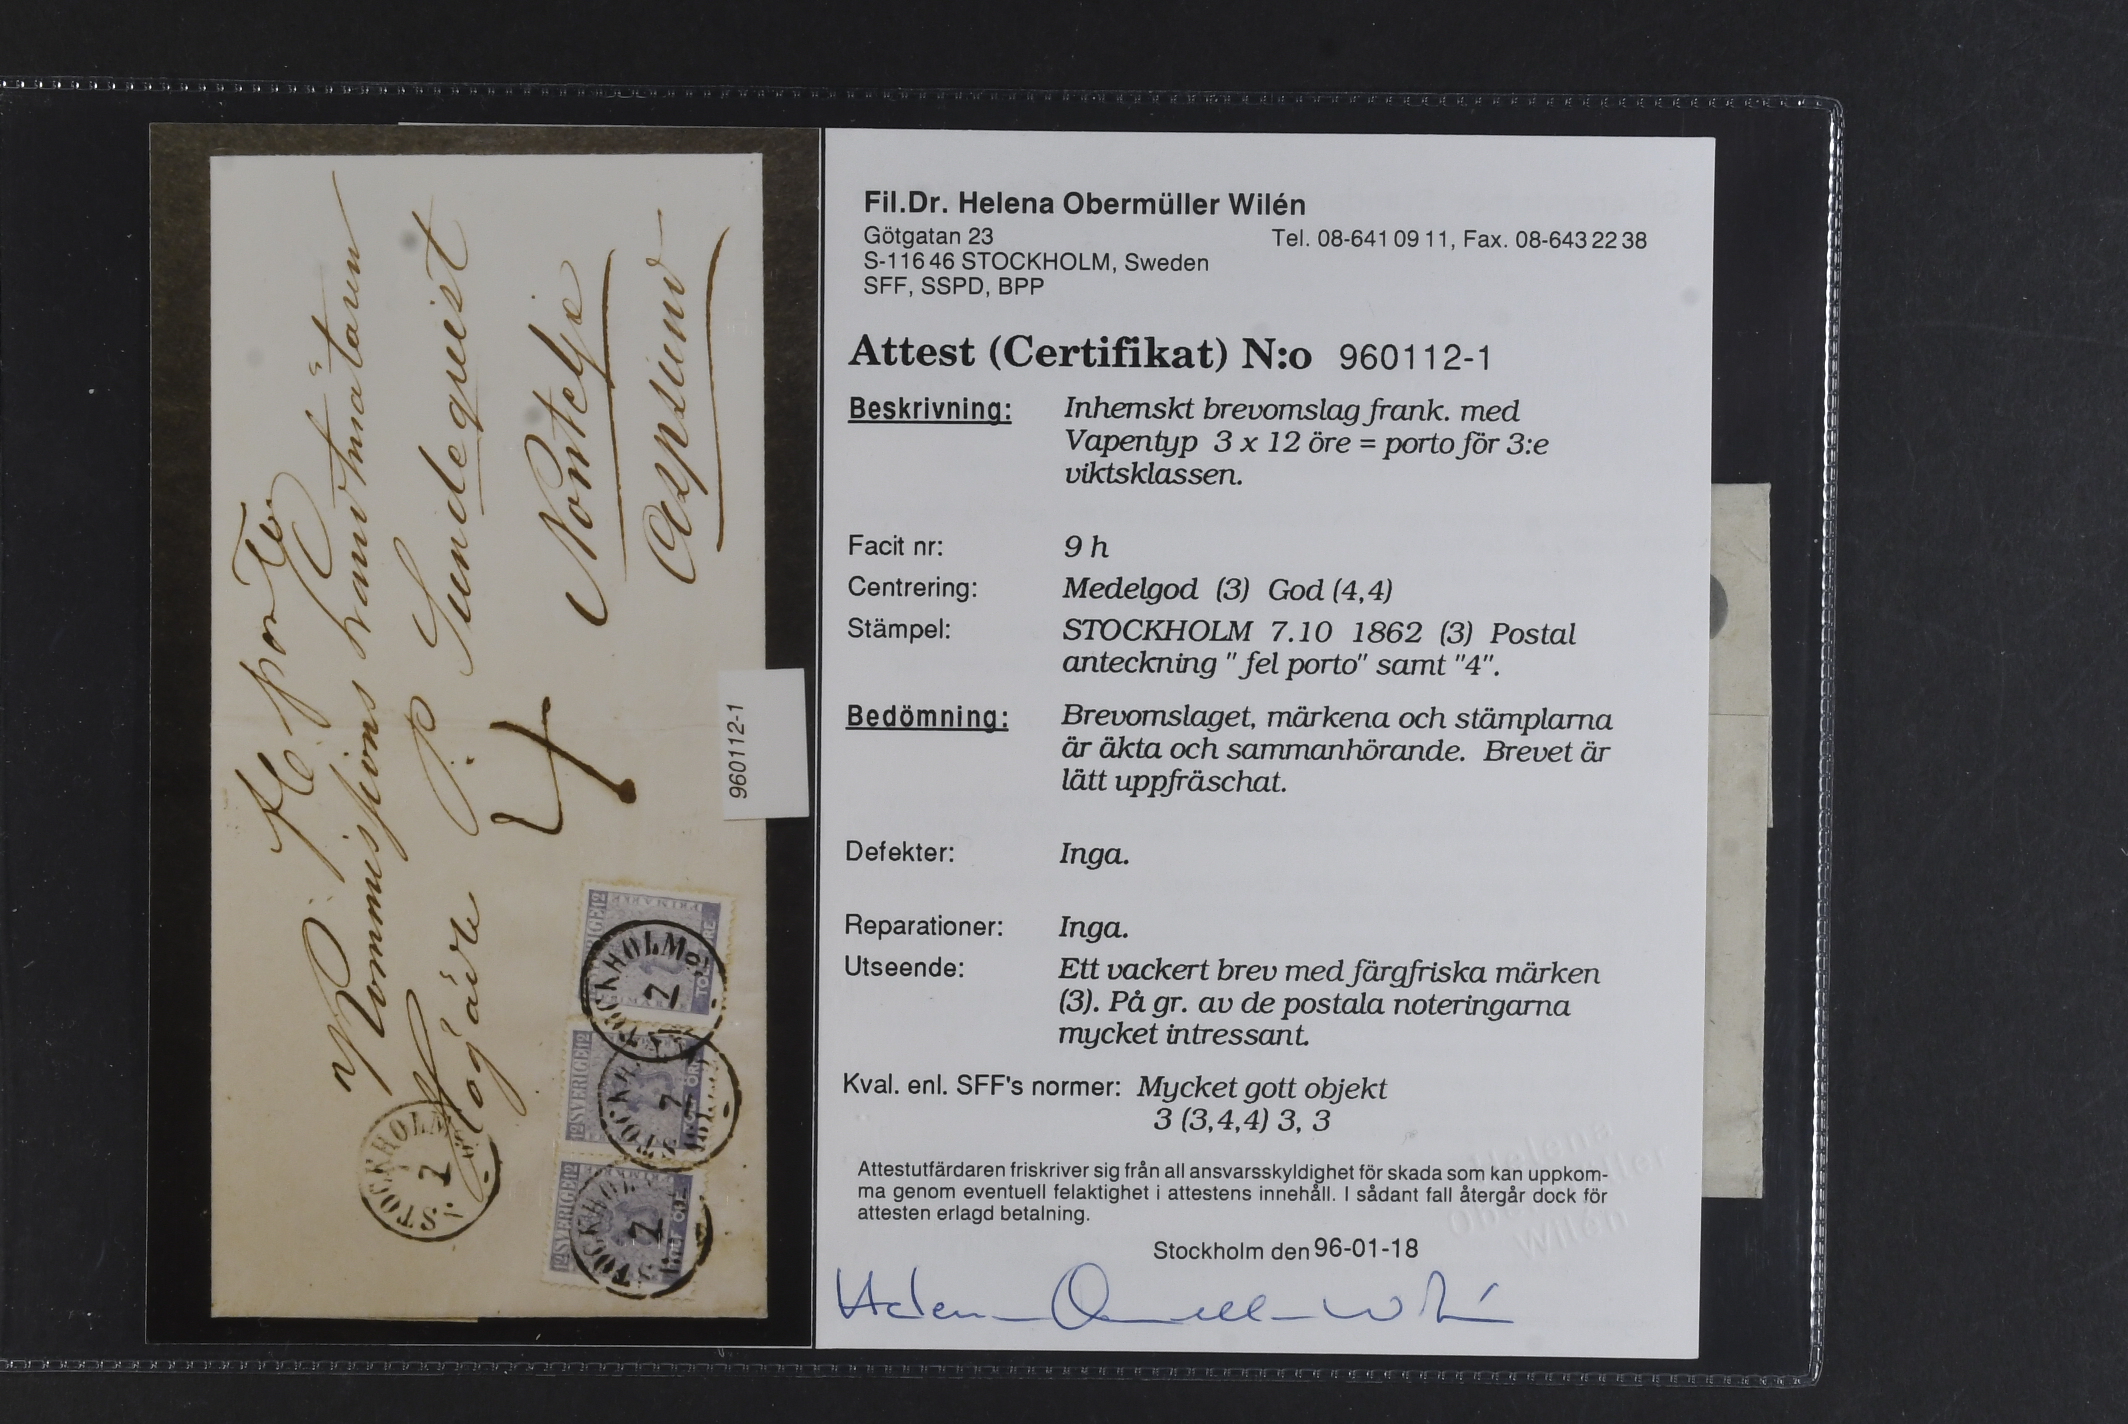 Fil.Dr. Helena Obermüller Wilén
Götgatan 23
Tel. 08-641 09 11, Fax. 08-643 22 38
S-116 46 STOCKHOLM, Sweden
SFF, SSPD, BPP
Attest (Certifikat) N:o 960112-1
Beskrivning: Inhemskt brevomslag frank. med
Vapentyp 3 x 12 öre = porto för 3:e
viktsklassen.
Facit nr: 9 h
Centrering: Medelgod (3) God (4,4)
Stämpel: STOCKHOLM 7.10 1862 (3) Postal
anteckning " fel porto" samt "4".
Bedömning: Brevomslaget, märkena och stämplarna
är äkta och sammanhörande. Brevet är
lätt uppfräschat.
Defekter: Inga.
Reparationer: Inga.
Utseende: Ett vackert brev med färgfriska märken
(3). På gr. av de postala noteringarna
mycket intressant.
Kval. enl. SFF's normer: Mycket gott objekt
3 (3,4,4) 3, 3
Attestutfärdaren friskriver sig från all ansvarsskyldighet för skada som kan uppkom-
ma genom eventuell felaktighet i attestens innehåll. I sådant fall återgår dock för
attesten erlagd betalning.
Stockholm den 96-01-18
Helena
Obermüller
Wilén
960112-1
porto
Kommissions
P. Sundequist
Norrtelje
4
STOCKHOLM
7
12 SVERIGE 12
TOLF ÖRE
STOCKHOLM
7
12 SVERIGE 12
TOLF ÖRE
STOCKHOLM
7
SVERIGE 12
FRIMÄRKE
STOCKHOLM
7